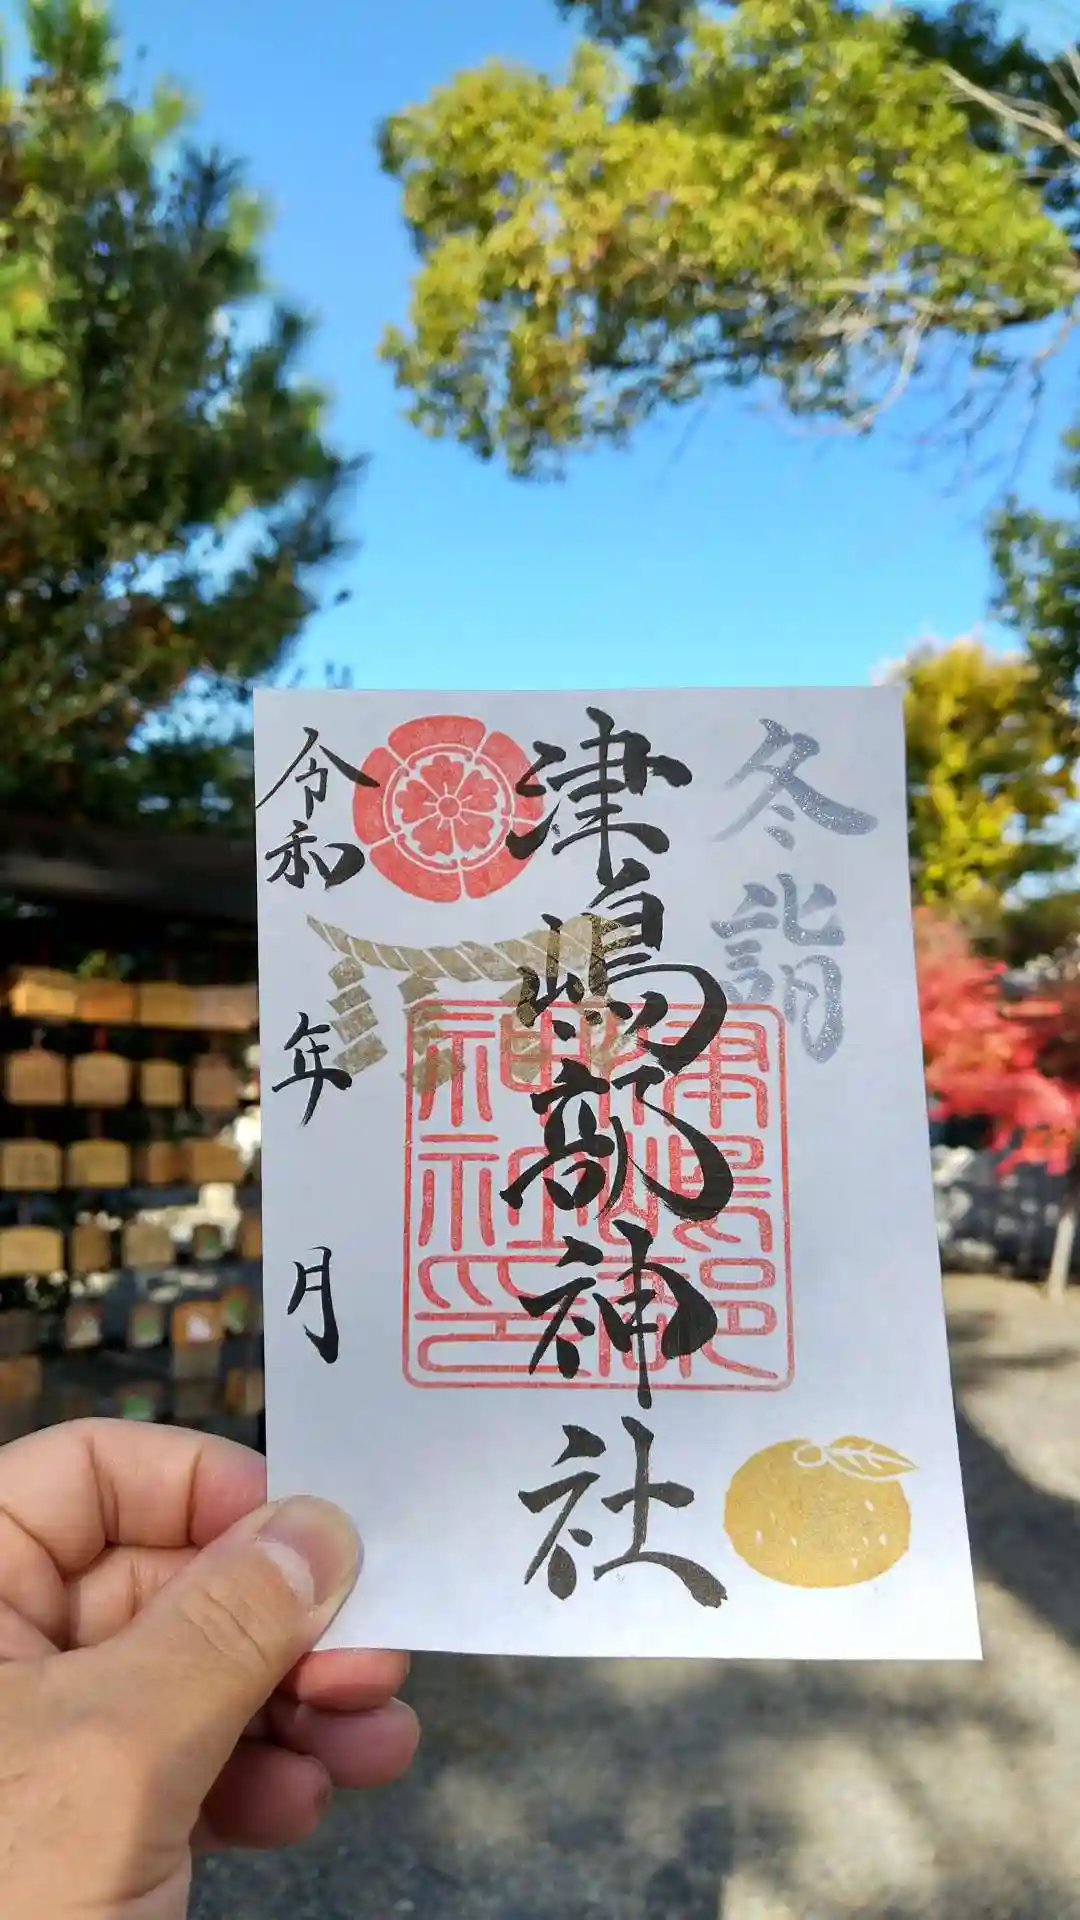 冬詣
津嶋部神社
津嶋部
神社
神社印
令和 年 月